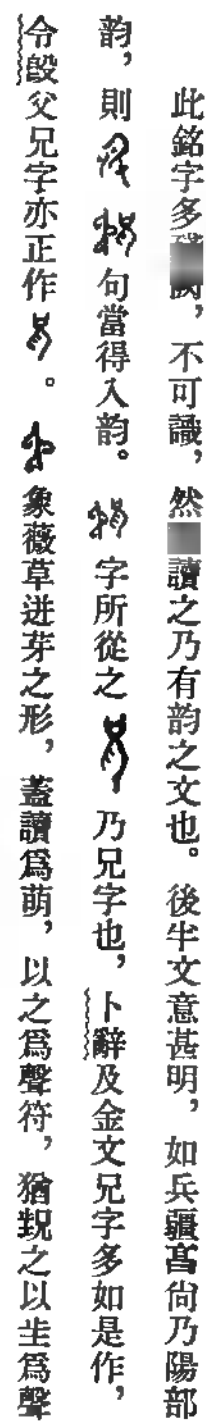 此銘字多，不可識，然讀之乃有韵之文也。後半文意甚明，如兵疆啻尙乃陽部
韵，則句當得入韵。字所從之乃兄字也，卜辭及金文兄字多如是作，
令𣪘父兄字亦正作。象薇草迸芽之形，蓋讀爲萌，以之爲聲符，猶䝺之以㞷爲聲